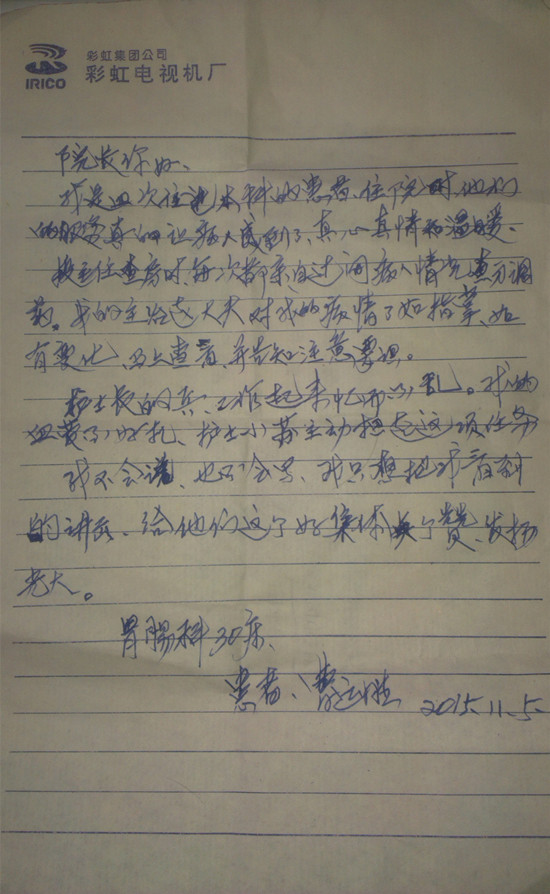 IRICO
彩虹集团公司
彩虹电视机厂
院长你好、
我是四次住进本科的患者、住院时、他们
的服务真的让病人感到了、真心真情和温暖、
主任查房时、每次都亲自过问病人情况查方调
药。我的主治 大夫对我的病情了如指掌、如
有变化、马上查看、并告知注意事项。
护士长的兵、工作起来忙而不乱。我的
血管不好扎、护士小苏主动担起这项任务
我不会说、也不会写、我只想把我看到
的讲出、给他们这个好集体 个赞、发扬
光大。
胃腸科30床、
患者、 2015.11.5